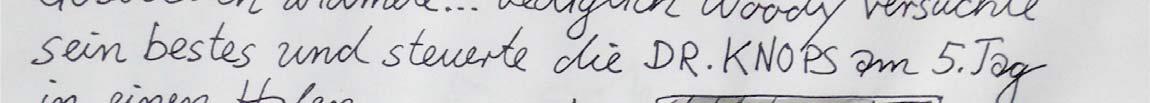 widmete... Lediglich Woody versuchte
sein bestes und steuerte die DR. KNOPS am 5. Tag
in einen